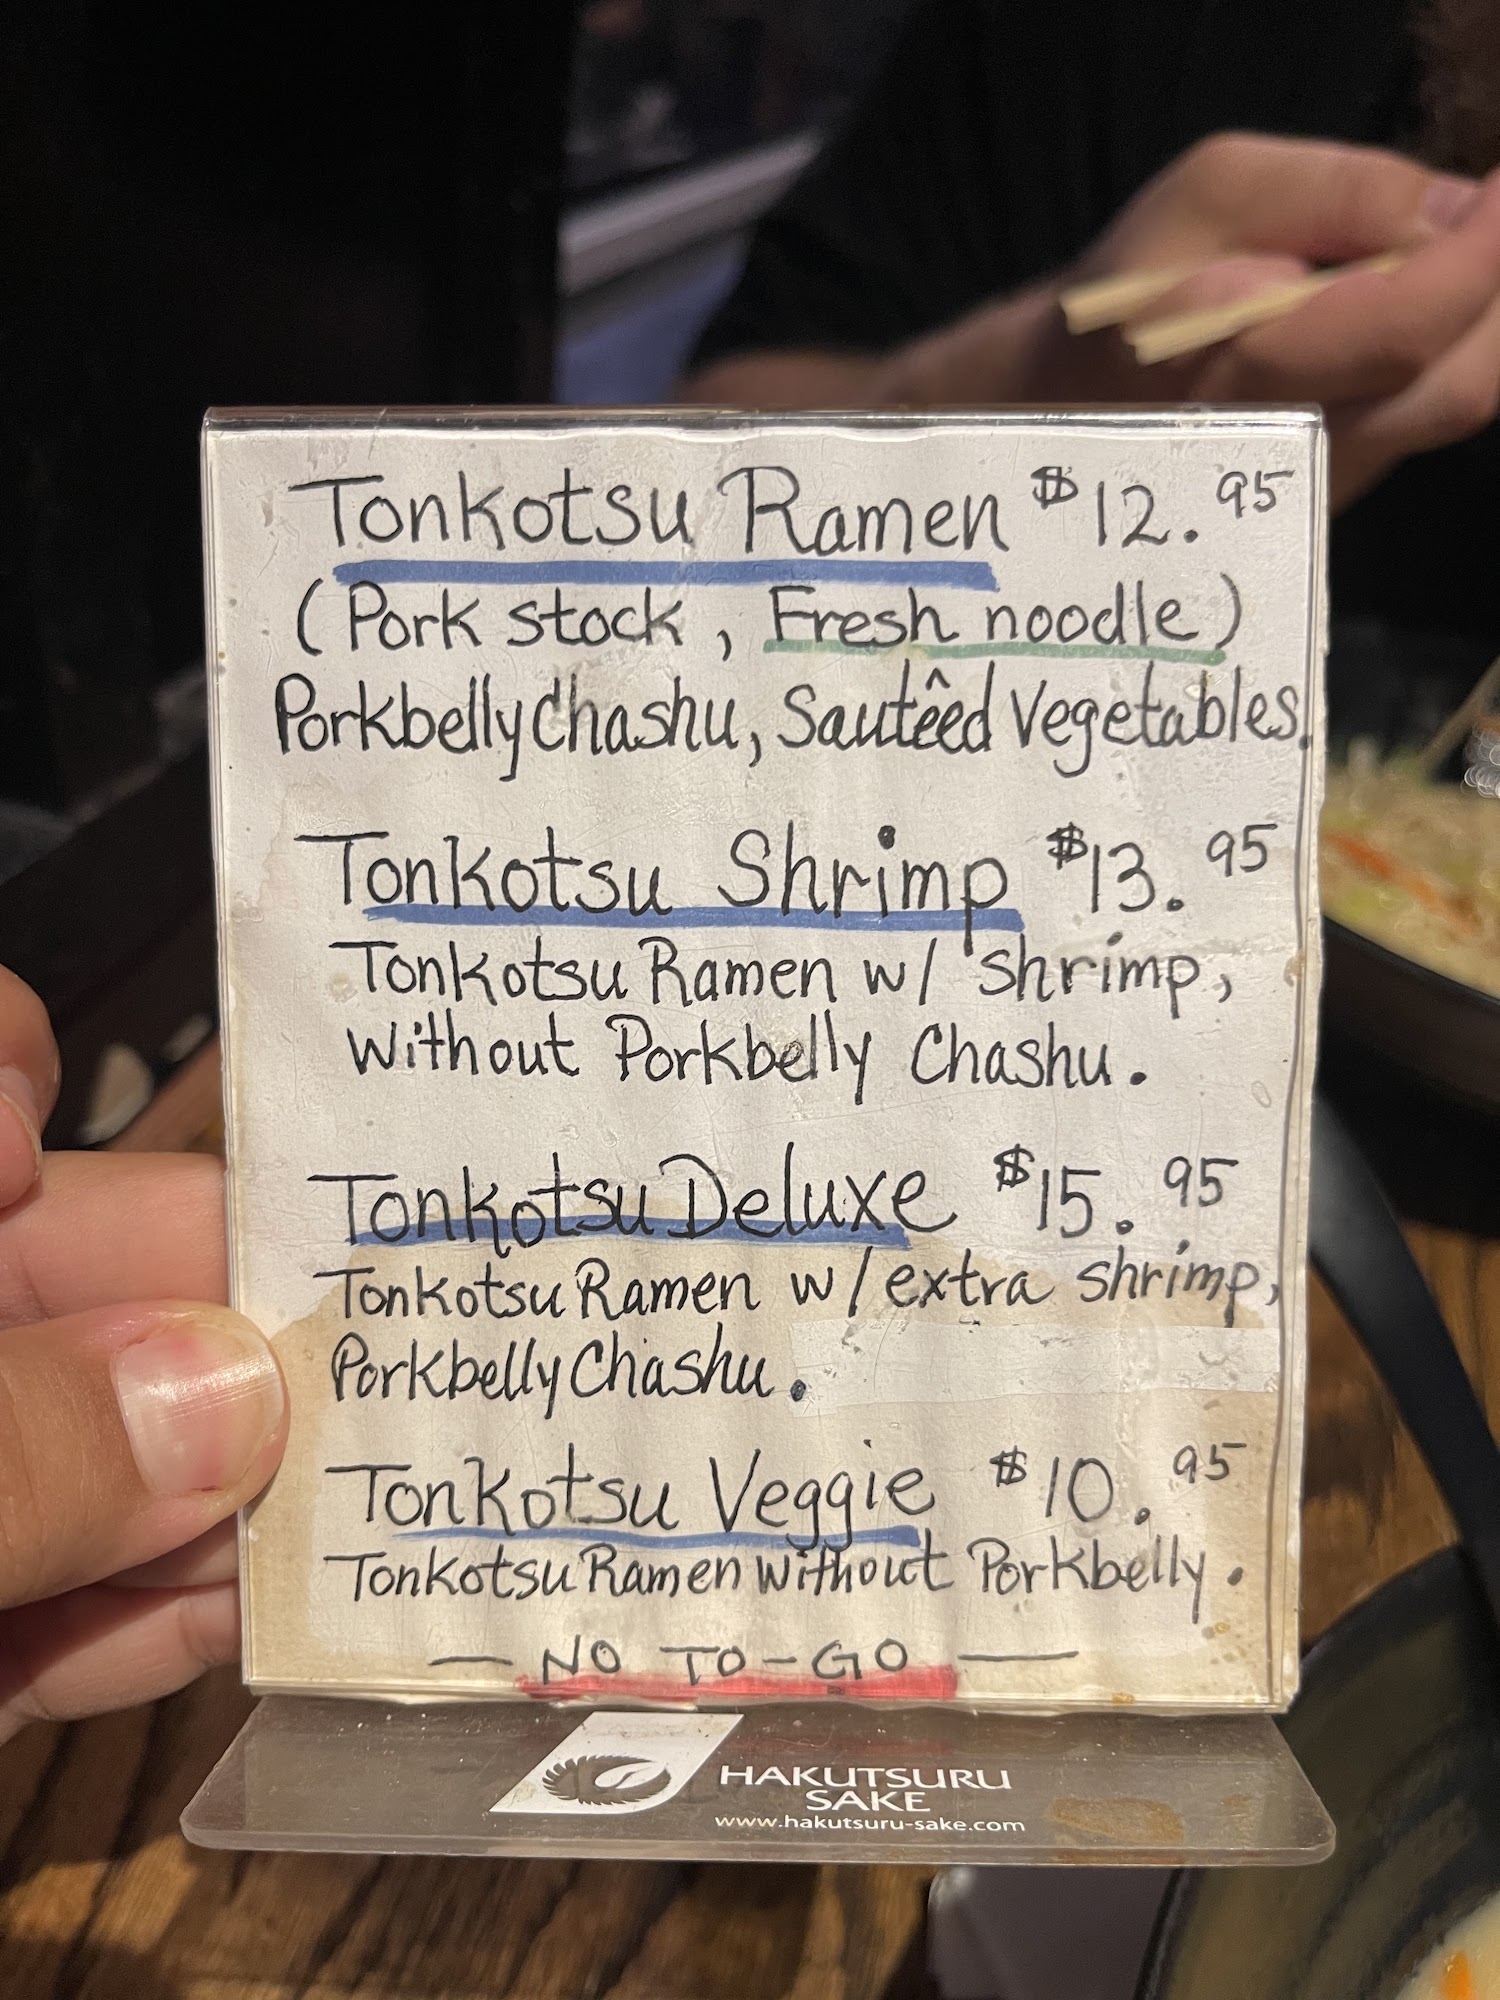 Tonkotsu Ramen $12.95
(Pork stock, Fresh noodle)
Porkbelly Chashu, Sautêed Vegetables.
Tonkotsu Shrimp $13.95
Tonkotsu Ramen w/ shrimp,
Without Porkbelly Chashu.
Tonkotsu Deluxe $15.95
Tonkotsu Ramen w/ extra shrimp,
Porkbelly Chashu.
Tonkotsu Veggie $10.95
Tonkotsu Ramen Without Porkbelly.
— NO TO-GO —
HAKUTSURU
SAKE
www.hakutsuru-sake.com